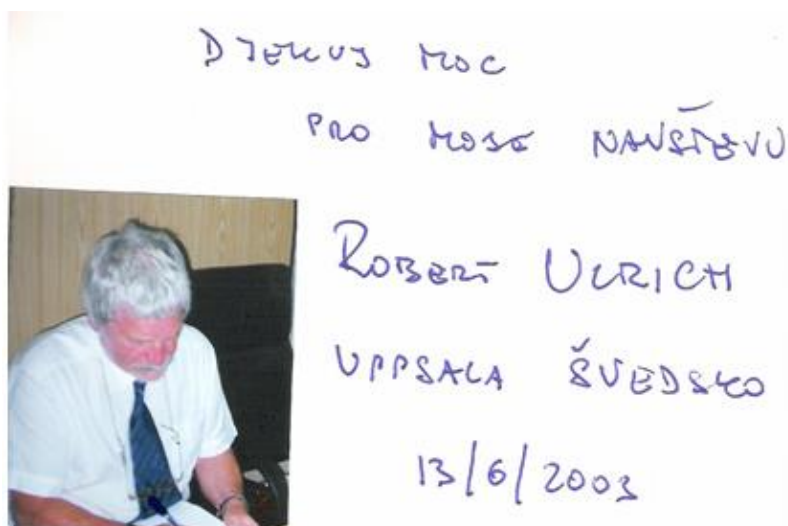 DJEKUJ MOC
PRO MOJE NAVŠTEVU
ROBERT ULRICH
UPPSALA ŠVEDSKO
13/6/2003